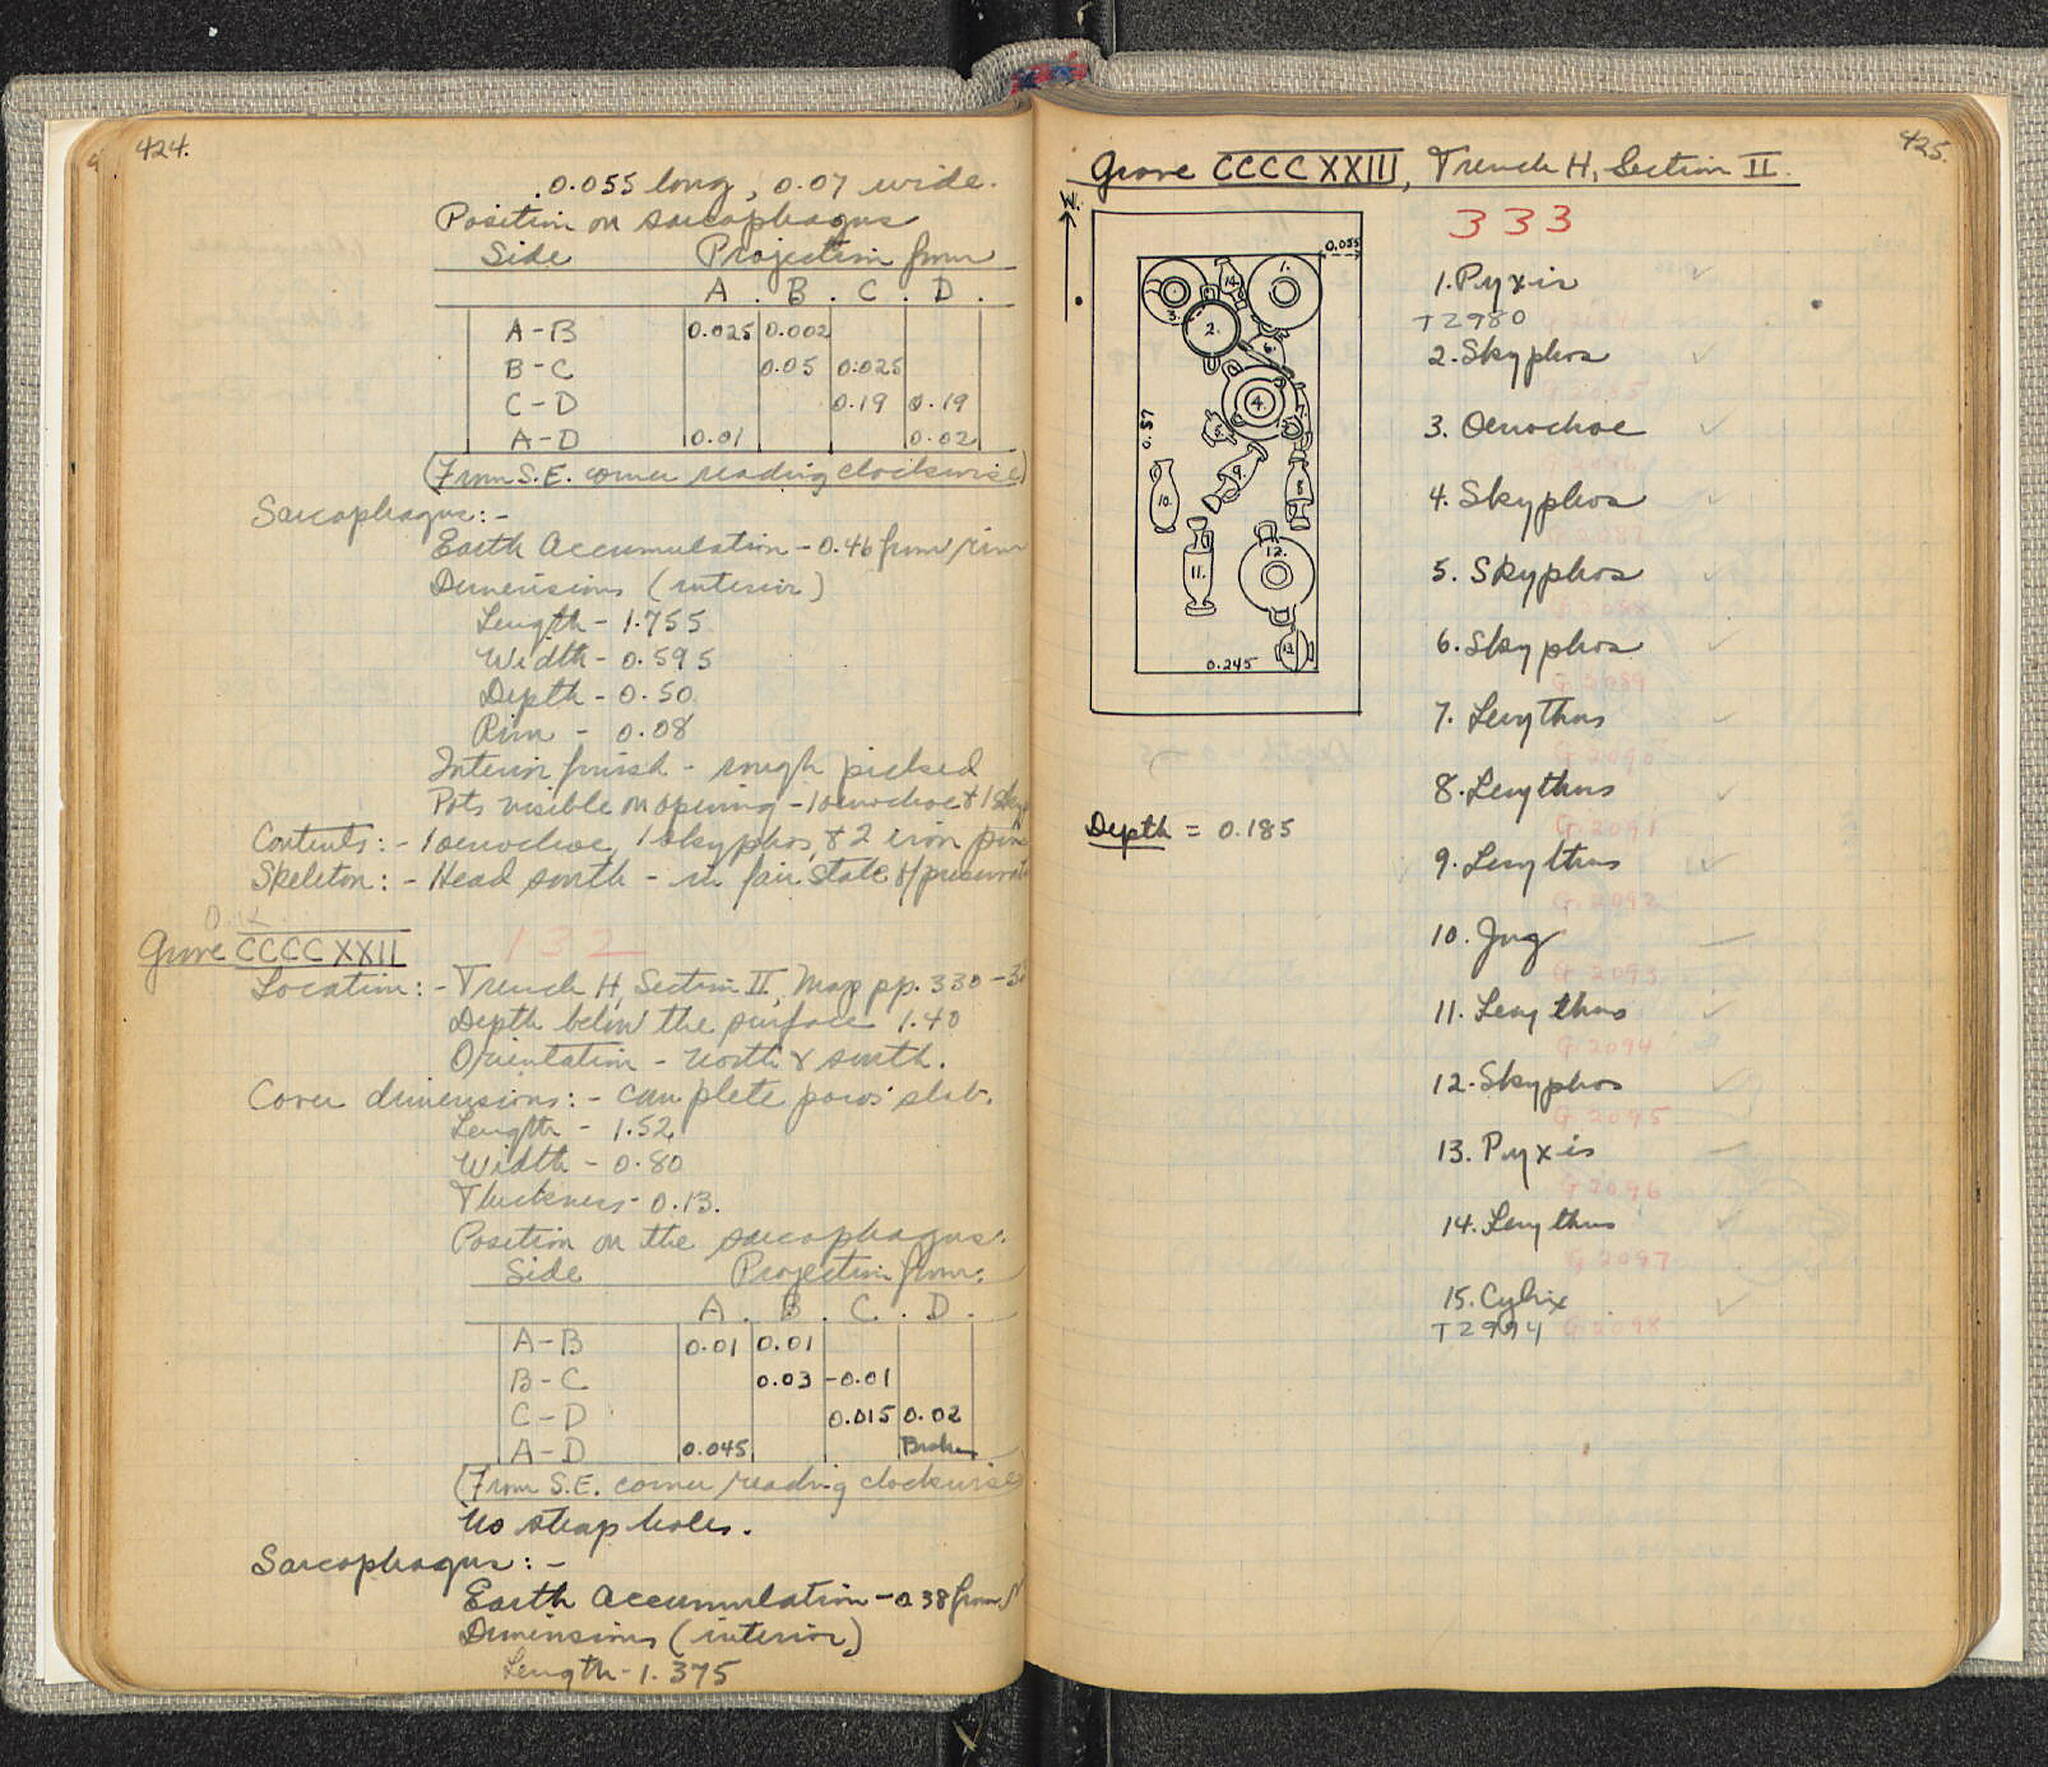 424.
0.055 long, 0.07 wide.
Position on sarcophagus
Side Projection from
A. B. C. D.
A-B 0.025 0.002
B-C 0.05 0.025
C-D 0.19 0.19
A-D 0.01 0.02
(From S.E. corner reading clockwise)
Sarcophagus:-
Earth Accumulation - 0.46 from rim
Dimensions (interior)
Length - 1.755
Width - 0.595
Depth - 0.50
Rim - 0.08
Interior finish - rough picked
Pots visible on opening - 1 oenochoe & 1
Contents:- 1 oenochoe, 1 skyphos, & 2 iron pins
Skeleton:- Head south - in fair state of
O.K.
Grave CCCCXXII 132
Location:- Trench H, Section II, Map pp. 330-
Depth below the surface 1.40
Orientation - North & south.
Cover dimensions:- complete poros slab.
Length - 1.52
Width - 0.80
Thickness - 0.13.
Position on the sarcophagus:
Side Projection from:
A. B. C. D.
A-B 0.01 0.01
B-C 0.03 -0.01
C-D 0.015 0.02
A-D 0.045 Broken
(From S.E. corner reading clockwise)
No strap holes.
Sarcophagus:-
Earth Accumulation - 0.38 from
Dimensions (interior)
Length - 1.375
425.
Grave CCCCXXIII, Trench H, Section II.
333
0.055
1.
14.
3.
2.
6.
0.57
4.
7.
5.
9.
8
10.
12.
11.
13.
0.245
Depth = 0.185
1. Pyxis
T2980 G 2084
2. Skyphos
G 2085
3. Oenochoe
G 2086
4. Skyphos
G 2087
5. Skyphos
G 2088
6. Skyphos
G 2089
7. Lecythus
G 2090
8. Lecythus
G 2091
9. Lecythus
G 2092
10. Jug
G 2093
11. Lecythus
G 2094
12. Skyphos
G 2095
13. Pyxis
G 2096
14. Lecythus
G 2097
15. Cylix
T2994 G 2098